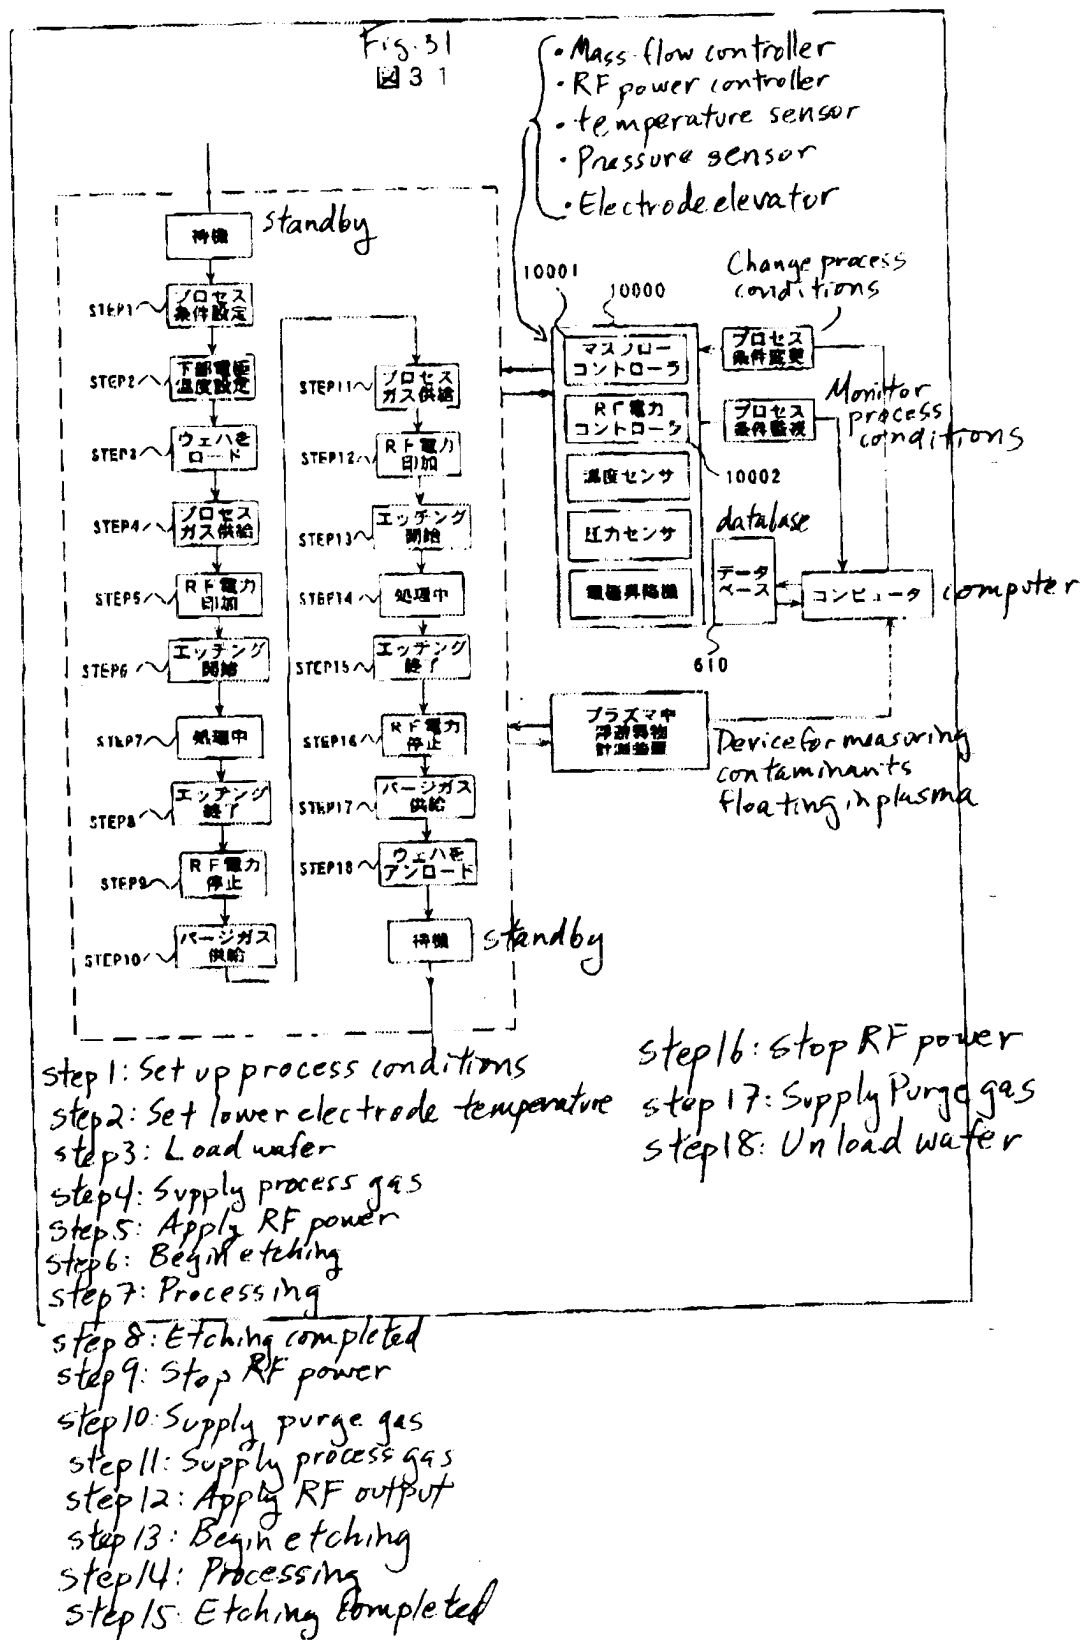 Fig. 31
図31
• Mass flow controller
• RF power controller
• temperature sensor
• Pressure sensor
• Electrode elevator
待機
standby
STEP1
プロセス
条件設定
STEP2
下部電極
温度設定
STEP3
ウェハを
ロード
STEP4
プロセス
ガス供給
STEP5
RF電力
印加
STEP6
エッチング
開始
STEP7
処理中
STEP8
エッチング
終了
STEP9
RF電力
停止
STEP10
パージガス
供給
STEP11
プロセス
ガス供給
STEP12
RF電力
印加
STEP13
エッチング
開始
STEP14
処理中
STEP15
エッチング
終了
STEP16
RF電力
停止
STEP17
パージガス
供給
STEP18
ウェハを
アンロード
待機
standby
10001
10000
マスフロー
コントローラ
RF電力
コントローラ
10002
温度センサ
圧力センサ
電極昇降機
Change process
conditions
プロセス
条件変更
Monitor
process
conditions
プロセス
条件監視
database
データ
ベース
610
コンピュータ
computer
プラズマ中
浮遊異物
計測装置
Device for measuring
contaminants
floating in plasma
step 1: Set up process conditions
step2: Set lower electrode temperature
step3: Load wafer
step4: Supply process gas
step5: Apply RF power
step6: Begin etching
step7: Processing
step8: Etching completed
step9: Stop RF power
step10: Supply purge gas
step11: Supply process gas
step12: Apply RF output
step13: Begin etching
step14: Processing
step15: Etching completed
step16: Stop RF power
step17: Supply Purge gas
step18: Unload wafer